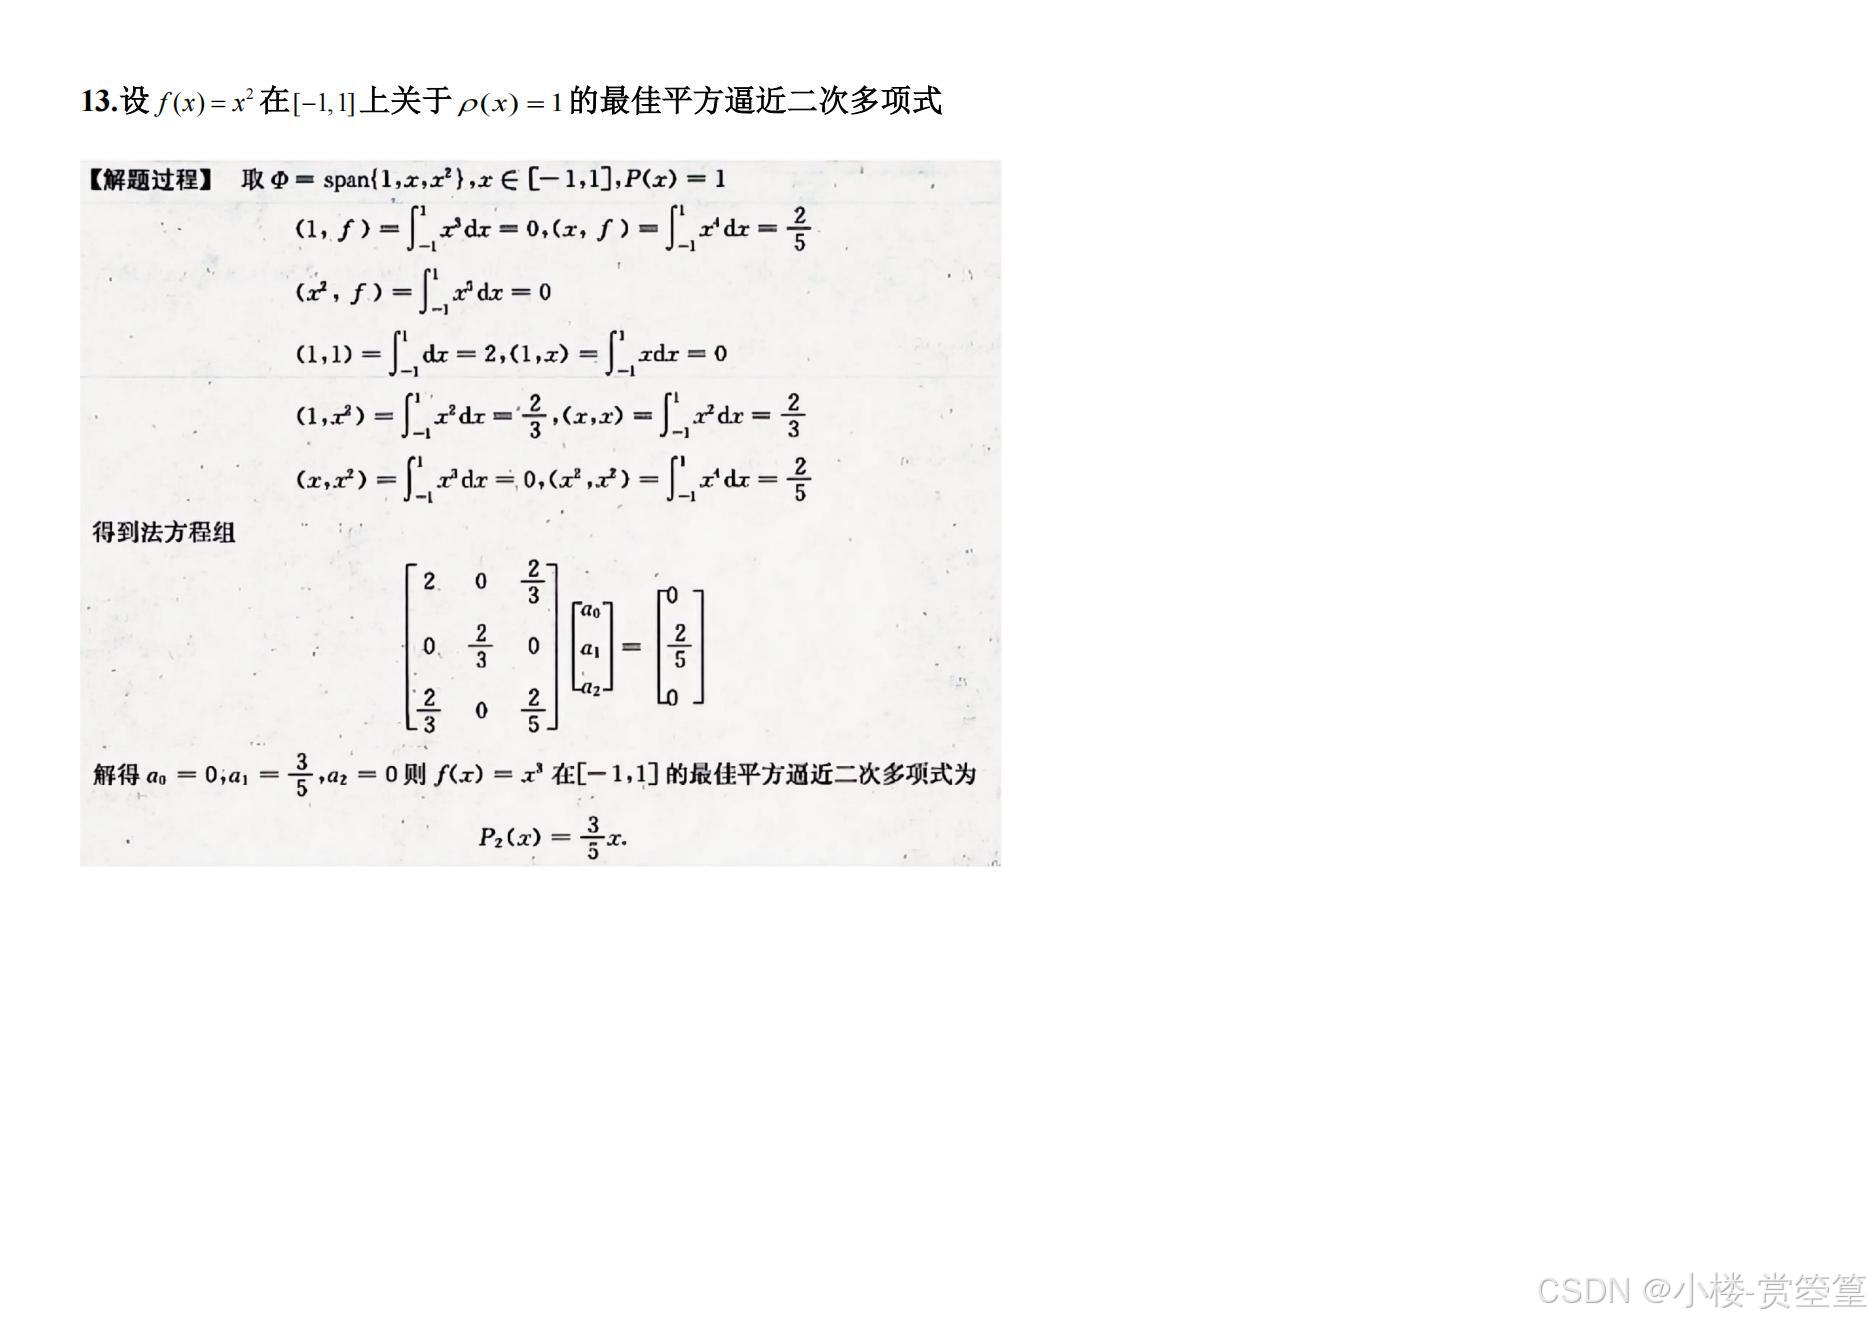 13.设 f(x) = x² 在[−1,1]上关于 ρ(x) = 1 的最佳平方逼近二次多项式
【解题过程】 取 Φ = span{1,x,x²},x ∈ [−1,1],P(x) = 1
(1, f) = ∫₋₁¹ x³dx = 0,(x, f) = ∫₋₁¹ x⁴dx = 2/5
(x², f) = ∫₋₁¹ x⁵dx = 0
(1,1) = ∫₋₁¹ dx = 2,(1,x) = ∫₋₁¹ xdx = 0
(1,x²) = ∫₋₁¹ x²dx = 2/3,(x,x) = ∫₋₁¹ x²dx = 2/3
(x,x²) = ∫₋₁¹ x³dx = 0,(x²,x²) = ∫₋₁¹ x⁴dx = 2/5
得到法方程组
[2 0 2/3; 0 2/3 0; 2/3 0 2/5] [a₀; a₁; a₂] = [0; 2/5; 0]
解得 a₀ = 0,a₁ = 3/5,a₂ = 0 则 f(x) = x³ 在[−1,1] 的最佳平方逼近二次多项式为
P₂(x) = 3/5 x.
CSDN @小楼-赏箜篁